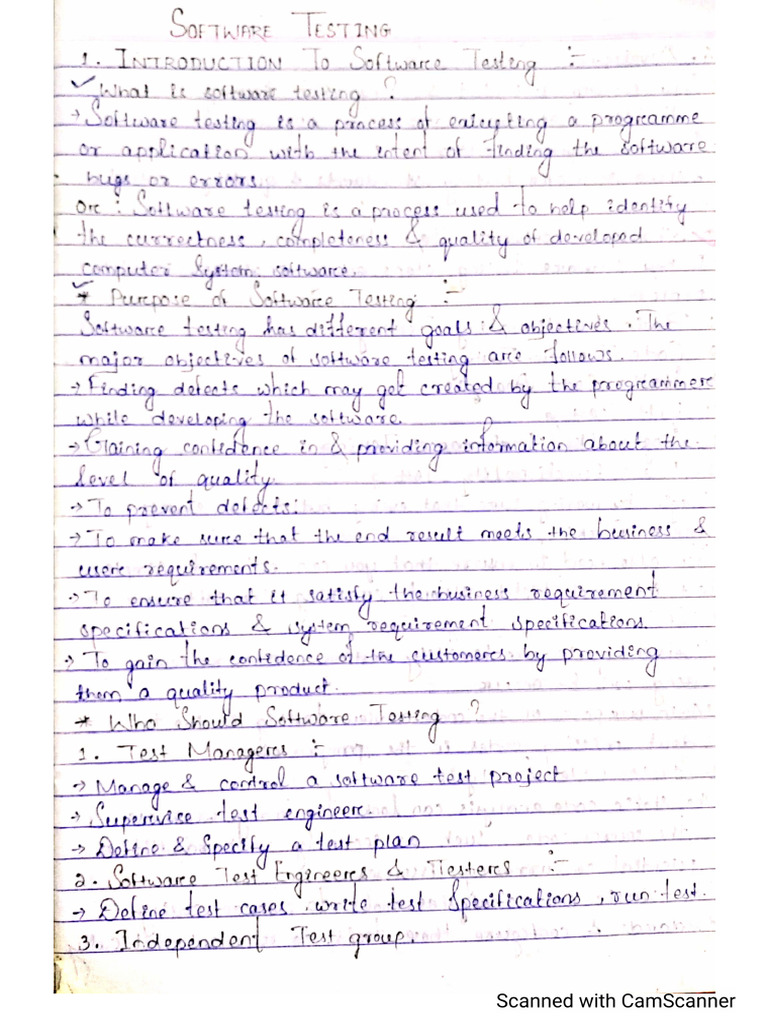 SOFTWARE TESTING
1. INTRODUCTION To Software Testing :-
What is software testing ?
→ Software testing is a process of executing a programme
or application with the intent of finding the software
bugs or errors.
Or : Software testing is a process used to help identify
the currectness, completeness & quality of developed
computer System software.
* Purpose of Software Testing :-
Software testing has different goals & objectives. The
major objectives of software testing are follows.
→ Finding defects which may get created by the programmers
while developing the software.
→ Gaining confidence in & providing information about the
level of quality.
→ To prevent defects.
→ To make sure that the end result meets the business &
user requirements.
→ To ensure that it satisfy the business requirement
specifications & system requirement specifications.
→ To gain the confidence of the customers by providing
them a quality product.
* Who Should Software Testing ?
1. Test Managers :-
→ Manage & control a software test project
→ Supervise test engineer.
→ Define & Specify a test plan
2. Software Test Engineers & Testers :-
→ Define test cases write test Specifications, run test.
3. Independent Test group.
Scanned with CamScanner